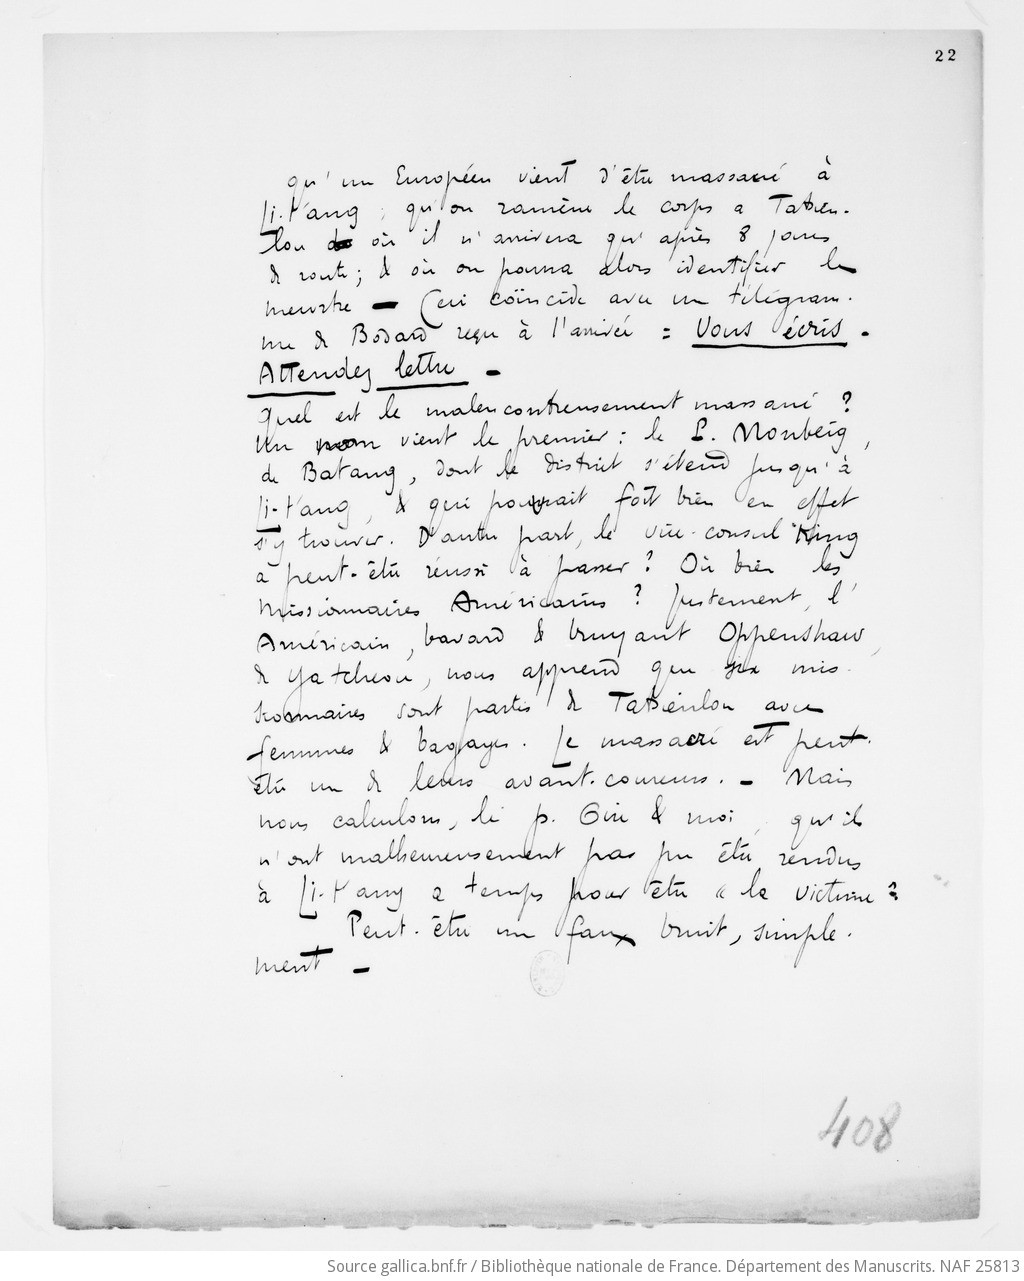 22
qu'un Européen vient d'être massacré à
Li-t'ang ; qu'on ramène le corps a Tatsien-
lou où il n'arrivera qu'après 8 jours
de route ; & où on pourra alors identifier le
meurtre — Ceci coïncide avec un télégram-
me de Bodard reçu à l'arrivée = Vous écris.
Attendez lettre —
Quel est le malencontreusement massacré ?
Un nom vient le premier : le P. Monbeig,
de Batang, dont le district s'étend jusqu'à
Li-t'ang, & qui pourrait fort bien en effet
s'y trouver. D'autre part, le vice-consul King
a peut-être réussi à passer ? Où bien les
missionnaires Américains ? Justement, l'
Américain, bavard & bruyant Oppenshaw,
de Yatcheou, nous apprend que six mis-
sionnaires sont partis de Tatsienlou avec
femmes & bagages. Le massacré est peut-
être un de leurs avant-coureurs. — Mais
nous calculons, le p. Gire & moi, qu'ils
n'ont malheureusement pas pu être rendus
à Li-t'ang a temps pour être « la victime ?
Peut-être un faux bruit, simple-
ment —
408
Source gallica.bnf.fr / Bibliothèque nationale de France. Département des Manuscrits. NAF 25813